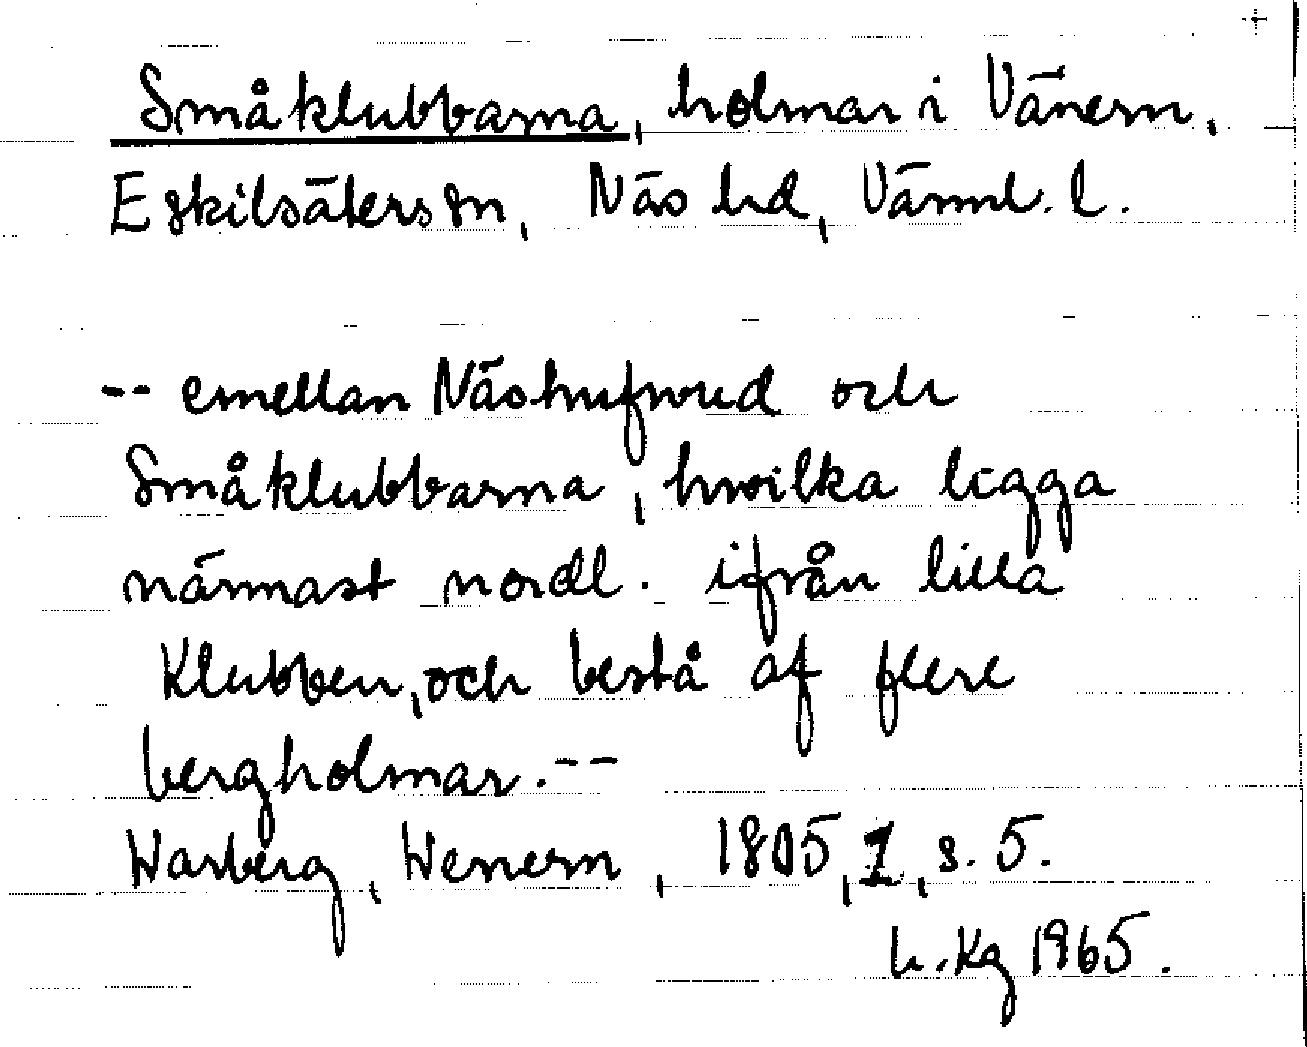 Småklubbarna, holmar i Vänern,
Eskilsäters sn, Näs hd, Värml. l.
-- emellan Näshufwud och
Småklubbarna, hwilka ligga
närmast nordl. ifrån lilla
Klubben, och bestå af flere
bergholmar. --
Warberg, Wenern, 1805, 1, s. 5.
h. Kg 1965.